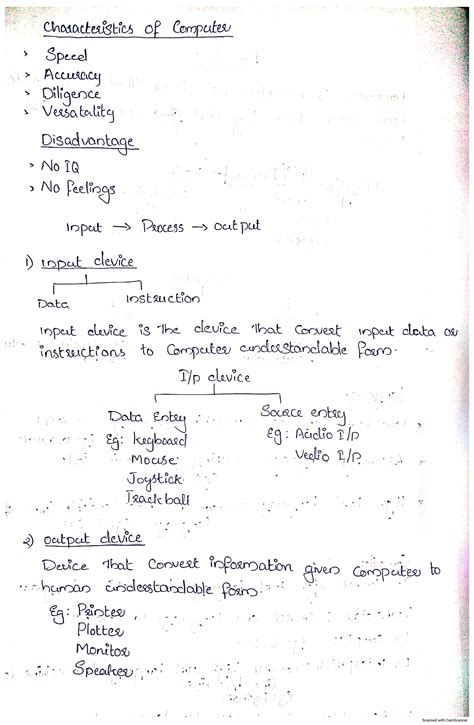 Characteristics of Computer
> Speed
> Accuracy
> Diligence
> Versatality
Disadvantage
> No IQ
> No feelings
Input → Process → output
1) Input device
Data Instruction
Input device is the device that convert input data or
instructions to Computer understandable form.
I/p device
Data Entry Source entry
Eg: keyboard Eg: Audio I/P
Mouse Vedio I/P
Joystick
Track ball
2) output device
Device that Convert information given computer to
human understandable form.
Eg: Printer
Plotter
Monitor
Speaker
Scanned with CamScanner